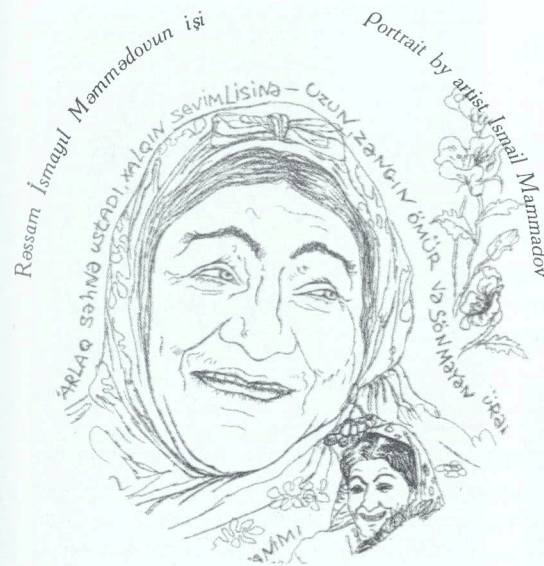 Rəssam İsmayıl Məmmədovun işi
Portrait by artist Ismail Mammadov
ƏRLAQ SƏHNƏ USTADI, XALQIN SEVİMLİSİNƏ – UZUN, ZƏNGİN ÖMÜR VƏ SÖNMƏYƏN ÜRƏ
AMMI